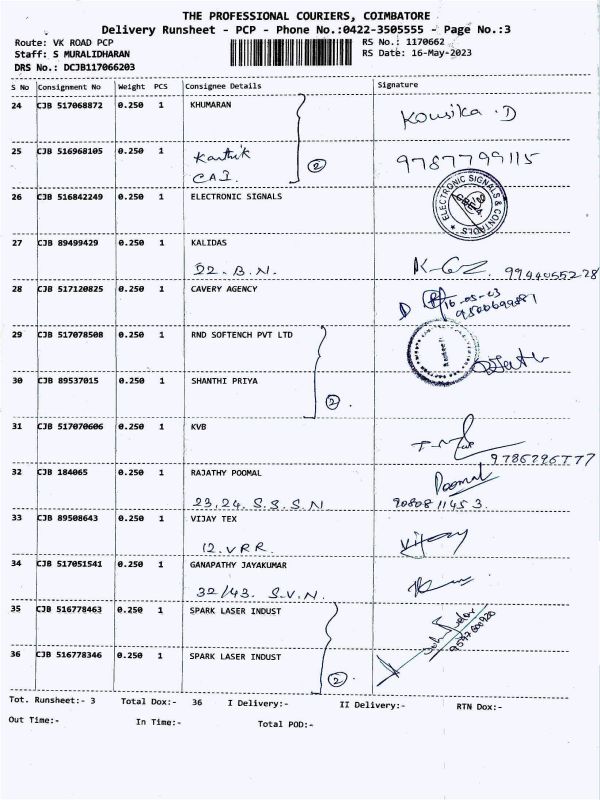 THE PROFESSIONAL COURIERS, COIMBATORE
Delivery Runsheet - PCP - Phone No.:0422-3505555 - Page No.:3
Route: VK ROAD PCP RS No.: 1170662
Staff: S MURALIDHARAN RS Date: 16-May-2023
DRS No.: DCJB117066203
S No Consignment No Weight PCS Consignee Details Signature
24 CJB 517068872 0.250 1 KHUMARAN Kousika .D
25 CJB 516968105 0.250 1 Karthik 9787799115
CAI. 2
26 CJB 516842249 0.250 1 ELECTRONIC SIGNALS
ELECTRONIC SIGNALS & CONTROLS
27 CJB 89499429 0.250 1 KALIDAS
D2. B.N.
28 CJB 517120825 0.250 1 CAVERY AGENCY
29 CJB 517078508 0.250 1 RND SOFTENCH PVT LTD
30 CJB 89537015 0.250 1 SHANTHI PRIYA 2
31 CJB 517070606 0.250 1 KVB
9786796777
32 CJB 184065 0.250 1 RAJATHY POOMAL Poomal
23,24. S.S.S.N 9080811453
33 CJB 89508643 0.250 1 VIJAY TEX Vijay
12. V.R.R.
34 CJB 517051541 0.250 1 GANAPATHY JAYAKUMAR
32/43. S.V.N.
35 CJB 516778463 0.250 1 SPARK LASER INDUST
36 CJB 516778346 0.250 1 SPARK LASER INDUST 2
Tot. Runsheet:- 3 Total Dox:- 36 I Delivery:- II Delivery:- RTN Dox:-
Out Time:- In Time:- Total POD:-